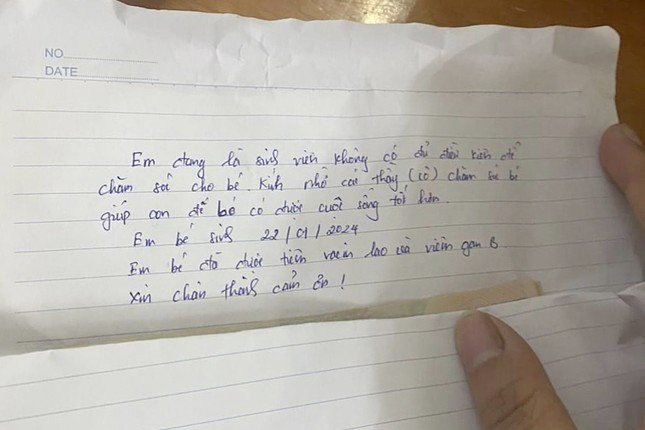 NO
DATE
Em đang là sinh viên không có đủ điều kiện để
chăm sóc cho bé. Kính nhờ các thầy (cô) chăm sóc bé
giúp con để bé có được cuộc sống tốt hơn.
Em bé sinh 22/01/2024
Em bé đã được tiêm vacxin lao và viêm gan B
Xin chân thành cảm ơn!